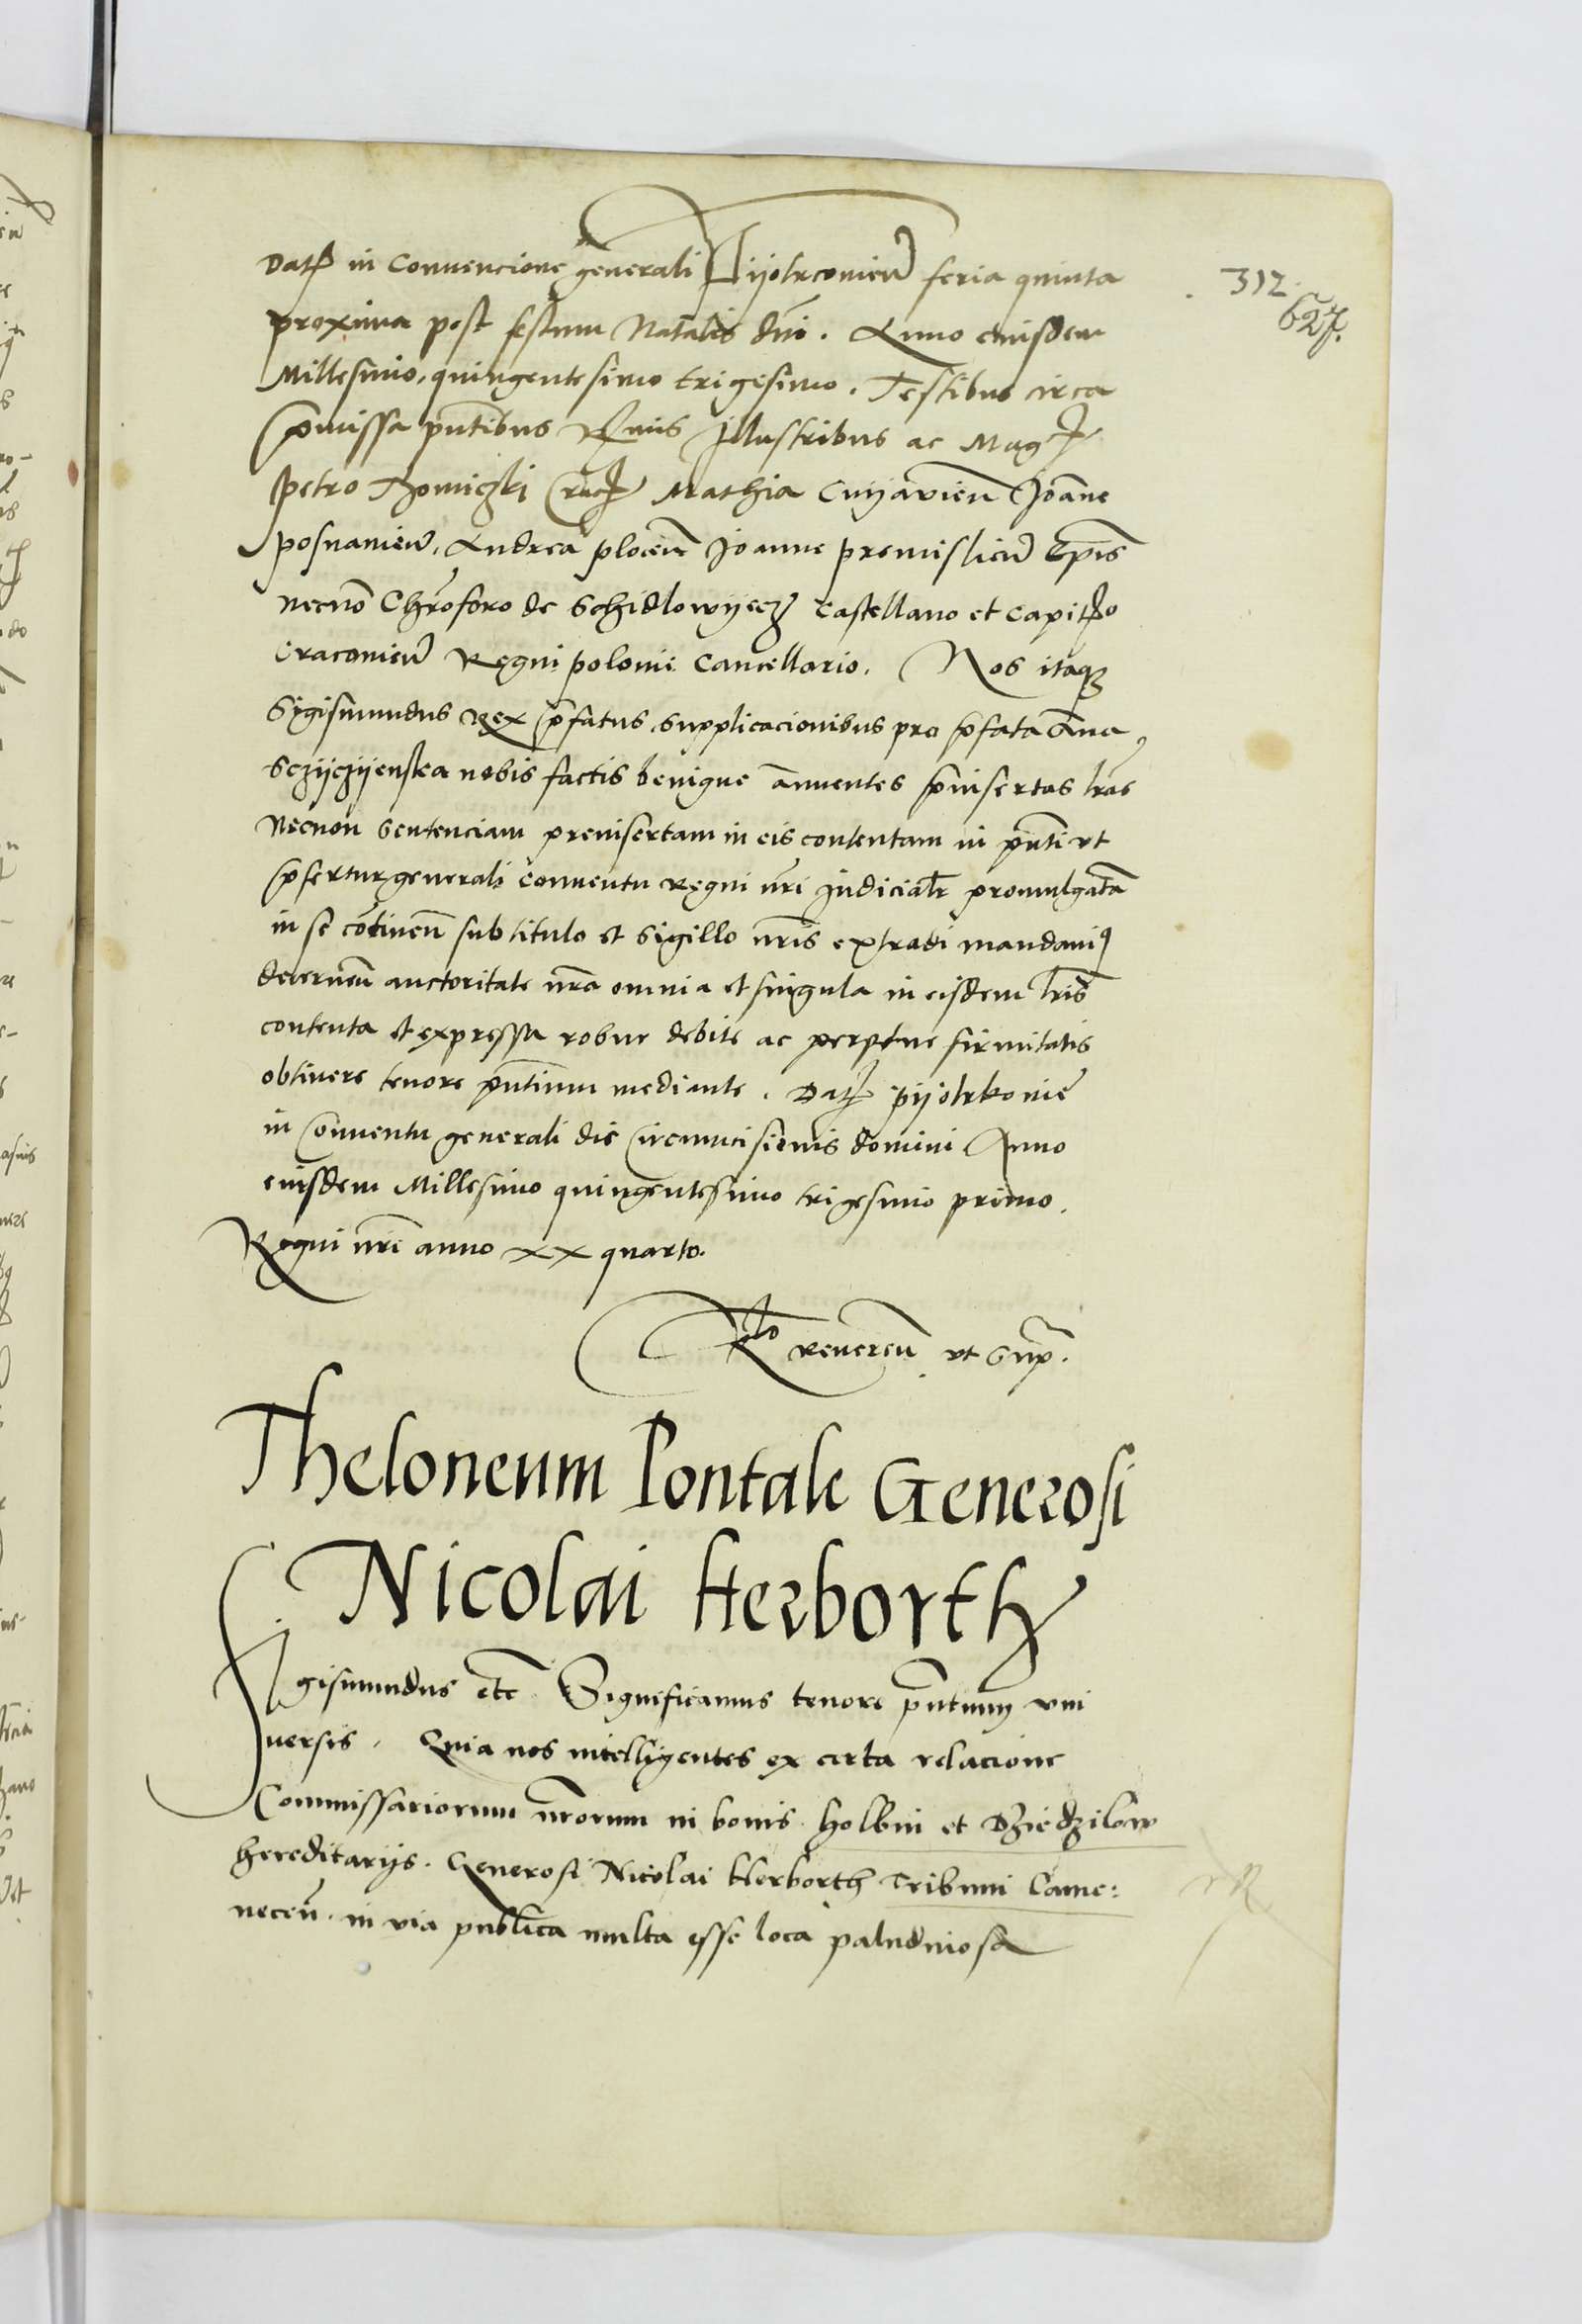 Dat in Convencione generali Pijotrconien feria quinta
proxima post festum Natalis dni. Anno eiusdem
Millesimo, quingentesimo trigesimo. Testibus circa
pmissa pntibus Rmis Illustribus ac Mag
Petro Thomiczki Crac Mathia Cuijavien Joanne
posnanien, Andrea plocen Joanne premislien Epis
necno Chroforo de Schidlowijecz Castellano et Capito
Cracovien Regni polonie Cancellario. Nos itaq
Sigismundus Rex pfatus supplicacionibus pro pfata Anna
Sczijczijenska nobis factis benigne annuentes pinsertas lras
Necnon sentenciam preinsertam in eis contentam in pnti vt
pfertur generali conventu regni nri Judicialr promulgata
in se continen sub titulo et sigillo nris extradi mandavi
decernen auctoritate nra omnia et singula in eisdem lris
contenta et expressa robur debite ac perpetue firmitatis
obtinere tenore pntium mediante. Dat pijotrkovie
in Conventu generali die Circumcisionis domini Anno
eiusdem Millesimo quingentesimo trigesimo primo.
Regni nri anno xx quarto.
Rlo reveren vt sup.
Theloneum Pontale Generosi
Nicolai Herborth
Sigismundus etc Significamus tenore pntium vni
versis. Quia nos intelligentes ex certa relacione
Commissariorum nrorum in bonis holbin et Dziedzilow
hereditarijs. Generosi Nicolai Herborth Tribuni Came:
necen. in via publica multa esse loca paludinosa
312.
627.